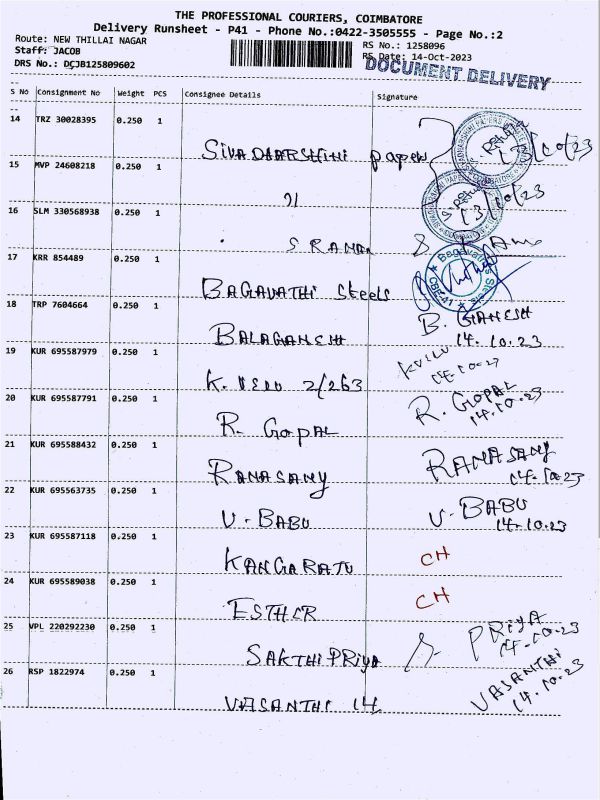 THE PROFESSIONAL COURIERS, COIMBATORE
Delivery Runsheet - P41 - Phone No.:0422-3505555 - Page No.:2
Route: NEW THILLAI NAGAR
RS No.: 1258096
Staff: JACOB
RS Date: 14-Oct-2023
DRS No.: DCJB125809602
DOCUMENT DELIVERY
S No Consignment No Weight PCS Consignee Details Signature
14 TRZ 30028395 0.250 1
SIVADHARSHINI papers 13/10/23
15 MVP 24608218 0.250 1
13/10/23
16 SLM 330568938 0.250 1
S RAMAN
17 KRR 854489 0.250 1
BAGAVATHI Steels Bagavathi Steels CBE-41
18 TRP 7604664 0.250 1
BALAGANESH B. GANESH
14.10.23
19 KUR 695587979 0.250 1
K. VELU 2/263
20 KUR 695587791 0.250 1
R. GOPAL R. GOPAL
14.10.23
21 KUR 695588432 0.250 1
RAMASAMY RAMASAMY
14.10.23
22 KUR 695563735 0.250 1
V. BABU V. BABU
14.10.23
23 KUR 695587118 0.250 1
KANGARAJU CH
24 KUR 695589038 0.250 1
ESTHER CH
25 VPL 220292230 0.250 1
SAKTHI PRIYA S. PRIYA
14.10.23
26 RSP 1822974 0.250 1
VASANTHI 14 VASANTHI
14.10.23